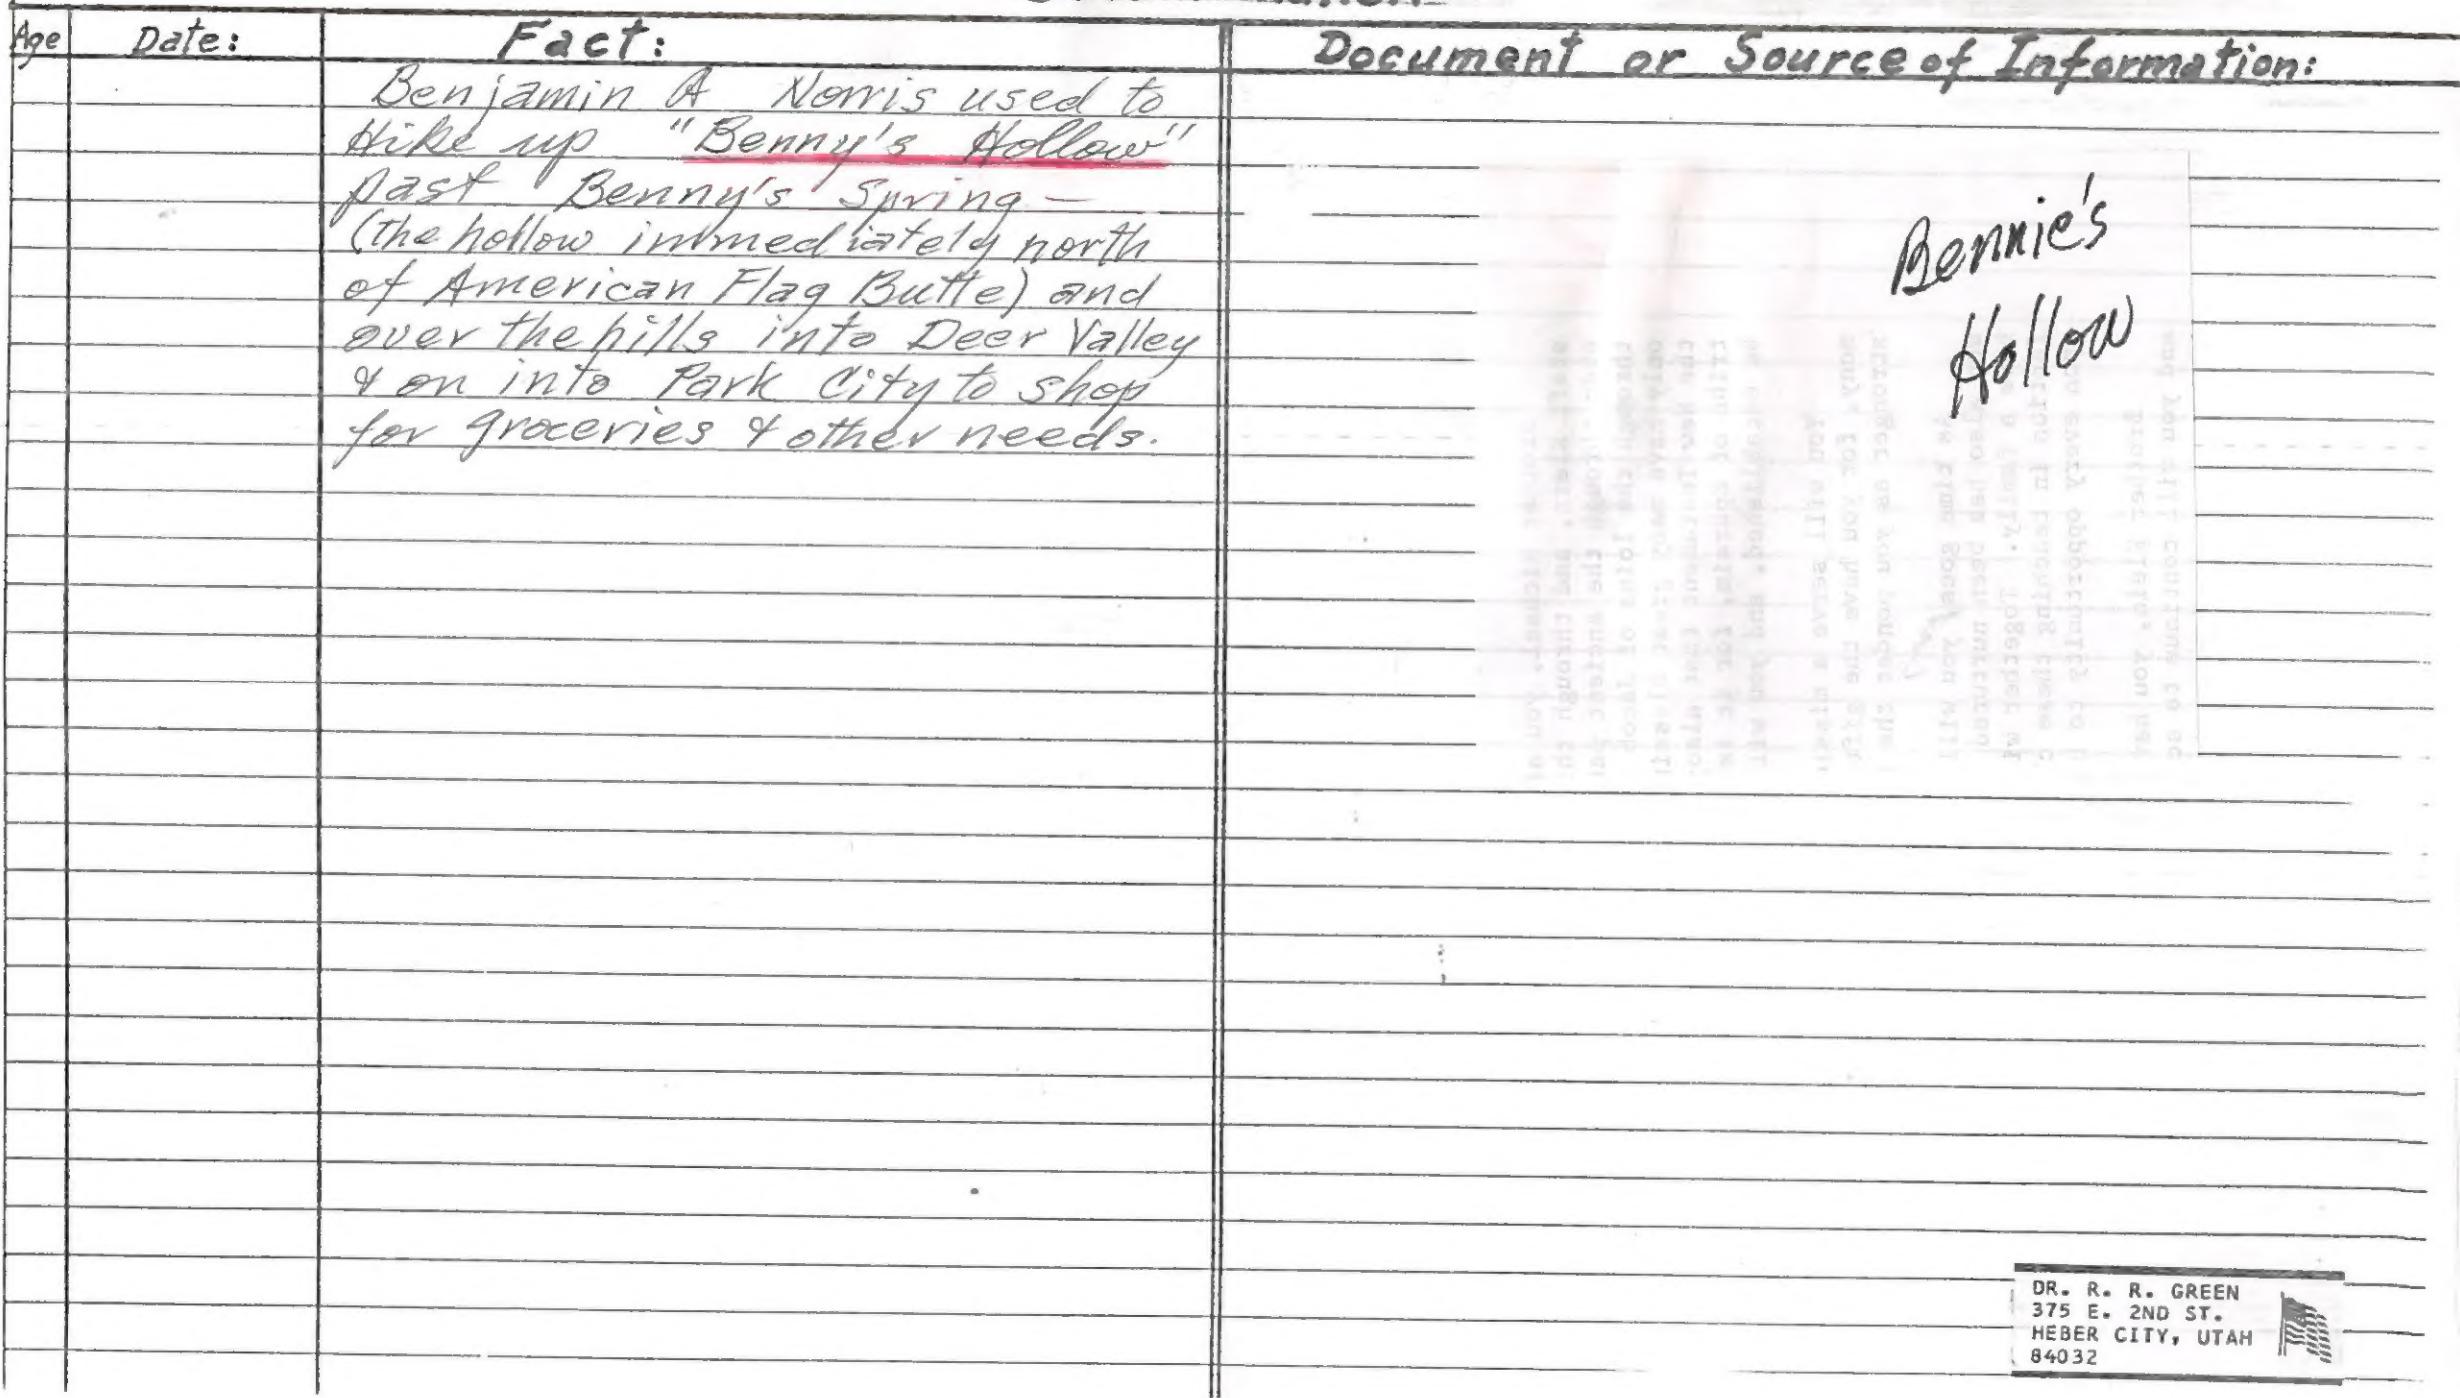 Age
Date:
Fact:
Document or Source of Information:
Benjamin A Norris used to
Hike up "Benny's Hollow"
past Benny's Spring —
(the hollow immediately north
of American Flag Butte) and
over the hills into Deer Valley
& on into Park City to shop
for groceries & other needs.
Bennie's
Hollow
DR. R. R. GREEN
375 E. 2ND ST.
HEBER CITY, UTAH
84032